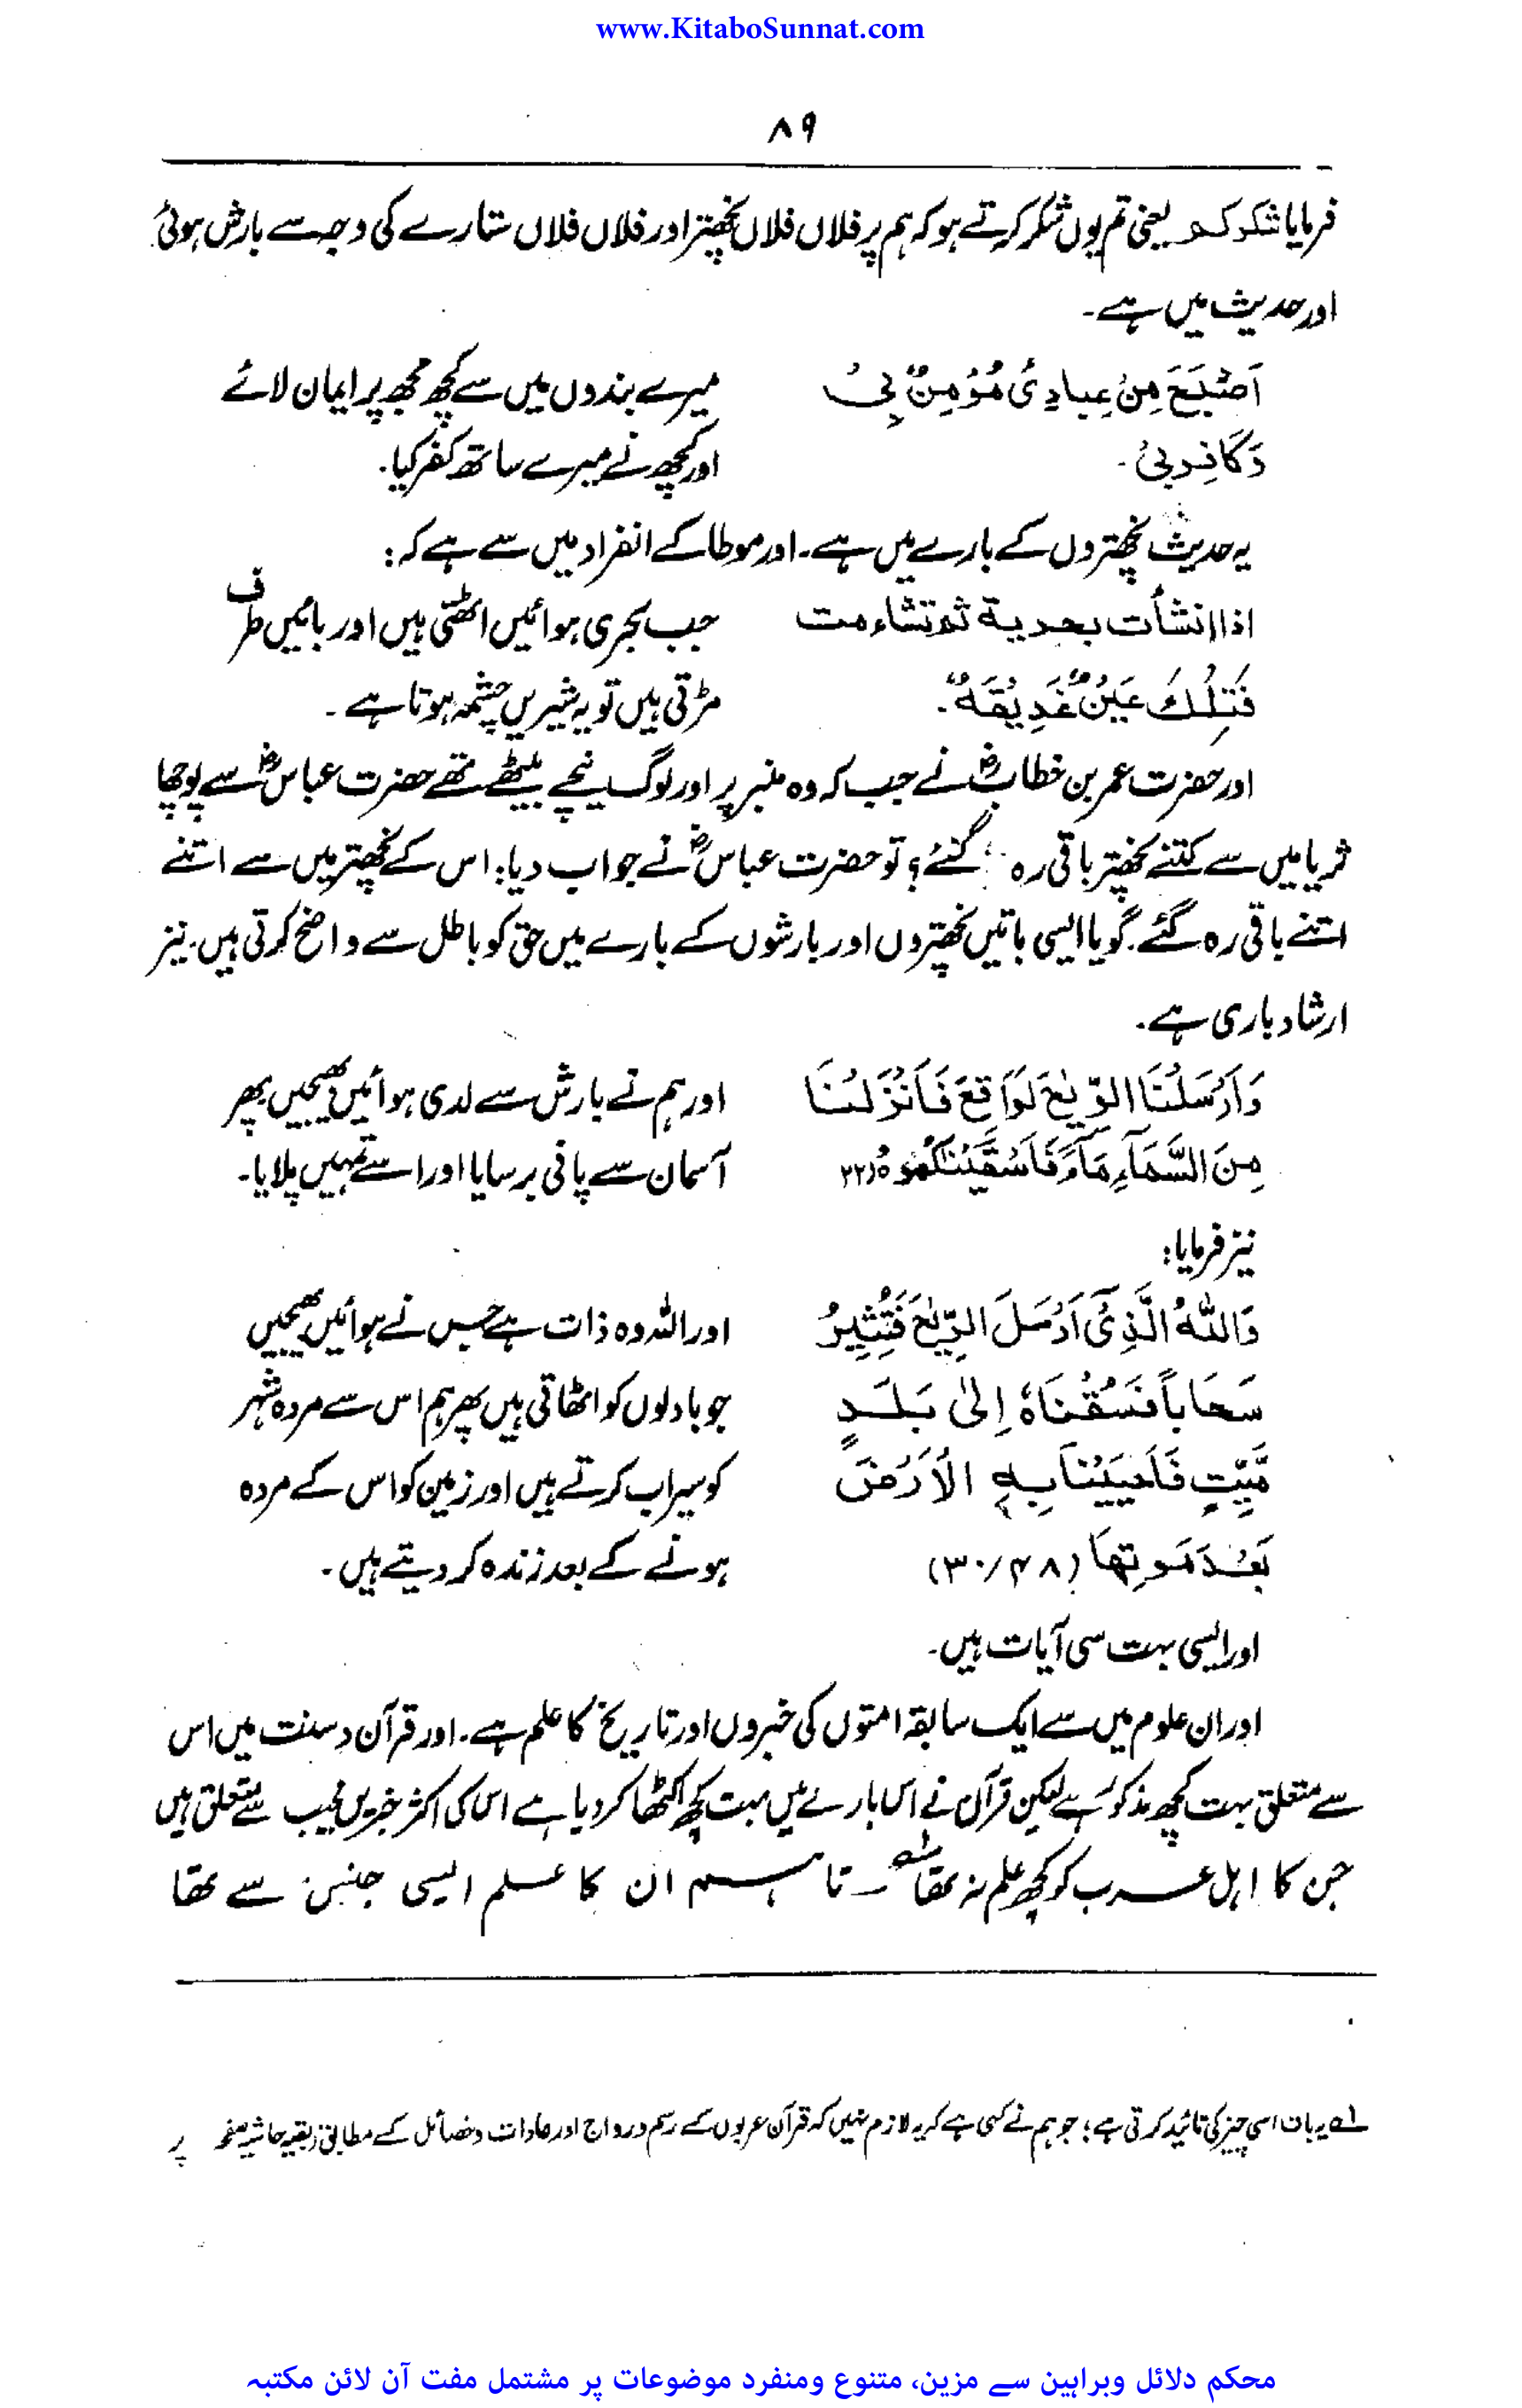 www.KitaboSunnat.com
۸۹
فرمایا شکرکم یعنی تم یوں شکر کرتے ہو کہ ہم پر فلاں فلاں نچھتر اور فلاں فلاں ستارے کی وجہ سے بارش ہوئی
اور حدیث میں ہے۔
اَصْبَحَ مِنْ عِبادِیْ مُؤْمِنٌ بِیْ
میرے بندوں میں سے کچھ مجھ پر ایمان لائے
وَکَافِرٌ بِیْ۔
اور کچھ نے میرے ساتھ کفر کیا۔
یہ حدیث نچھتروں کے بارے میں ہے۔ اور موطا کے انفراد میں سے ہے کہ:
اذا انشأت بحریة ثم تشاءمت
جب بحری ہوائیں اٹھتی ہیں اور بائیں طرف
فَتِلْكَ عَیْنٌ غَدِیْقَةٌ۔
مڑتی ہیں تو یہ شیریں چشمہ ہوتا ہے۔
اور حضرت عمر بن خطابؓ نے جب کہ وہ منبر پر اور لوگ نیچے بیٹھے تھے حضرت عباسؓ سے پوچھا
ثریا میں سے کتنے نچھتر باقی رہ گئے؟ تو حضرت عباسؓ نے جواب دیا: اس کے نچھتر میں سے اتنے
اتنے باقی رہ گئے۔ گویا ایسی باتیں نچھتروں اور بارشوں کے بارے میں حق کو باطل سے واضح کرتی ہیں۔ نیز
ارشاد باری ہے۔
وَاَرْسَلْنَا الرِّیٰحَ لَوَاقِحَ فَاَنْزَلْنَا
اور ہم نے بارش سے لدی ہوائیں بھیجیں پھر
مِنَ السَّمَآءِ مَآءً فَاَسْقَیْنٰکُمُوْهُ (۲۲
آسمان سے پانی برسایا اور اسے تمہیں پلایا۔
نیز فرمایا:
وَاللّٰهُ الَّذِیْٓ اَرْسَلَ الرِّیٰحَ فَتُثِیْرُ
اور اللہ وہ ذات ہے جس نے ہوائیں بھیجیں
سَحَاباً فَسُقْنَاهُ اِلیٰ بَلَدٍ
جو بادلوں کو اٹھاتی ہیں پھر ہم اس سے مردہ شہر
مَّیِّتٍ فَاَحیَیْنَا بِهِ الْاَرْضَ
کو سیراب کرتے ہیں اور زمین کو اس کے مردہ
بَعْدَ مَوتِهَا (۳۰/۴۸)
ہونے کے بعد زندہ کر دیتے ہیں۔
اور ایسی بہت سی آیات ہیں۔
اور ان علوم میں سے ایک سابقہ امتوں کی خبروں اور تاریخ کا علم ہے۔ اور قرآن و سنت میں اس
سے متعلق بہت کچھ مذکور ہے لیکن قرآن نے اس بارے میں بہت کچھ اکٹھا کر دیا ہے اس کی اکثر خبریں غیب سے متعلق ہیں
جن کا اہل عرب کو کچھ علم نہ تھا ۱؎ تاہم ان کا علم ایسی جنس سے تھا
۱؎ یہ بات اسی چیز کی تائید کرتی ہے؛ جو ہم نے کہی ہے کہ یہ لازم نہیں کہ قرآن عربوں کے رسم و رواج اور عادات و خصائل کے مطابق (بقیہ حاشیہ صفحہ پر
محکم دلائل وبراہین سے مزین، متنوع ومنفرد موضوعات پر مشتمل مفت آن لائن مکتبہ